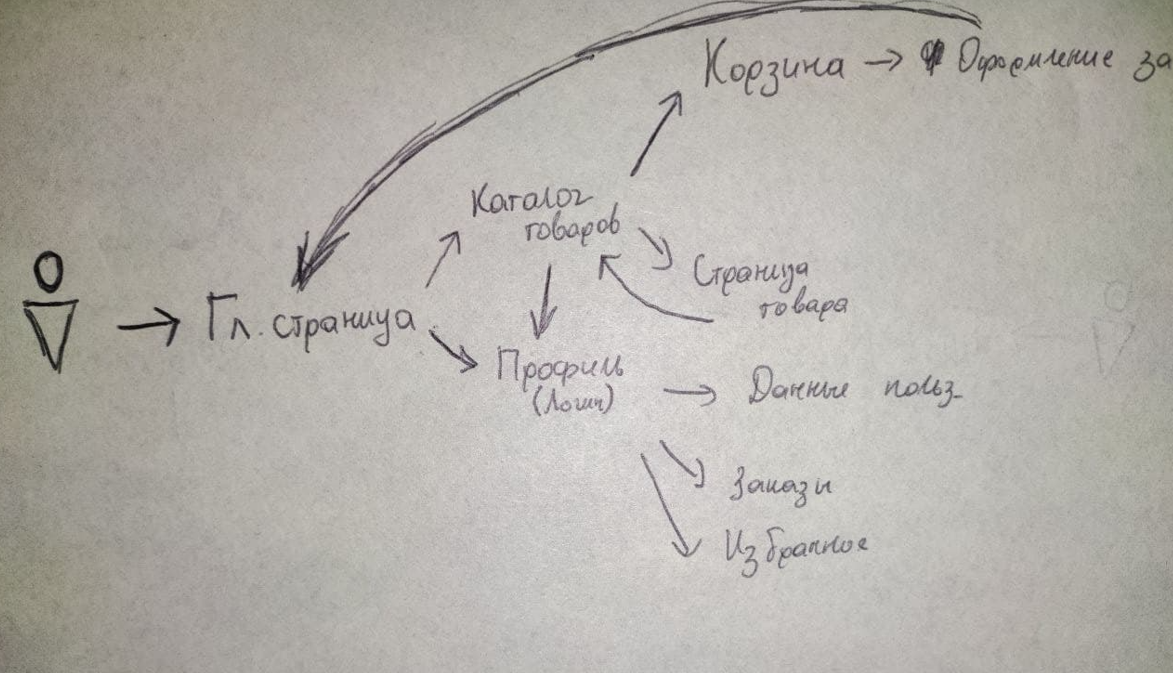 Корзина → Оформление за
Каталог
товаров
Страница
товара
Гл. страница
Профиль
(Логин)
Данные польз.
Заказы
Избранное